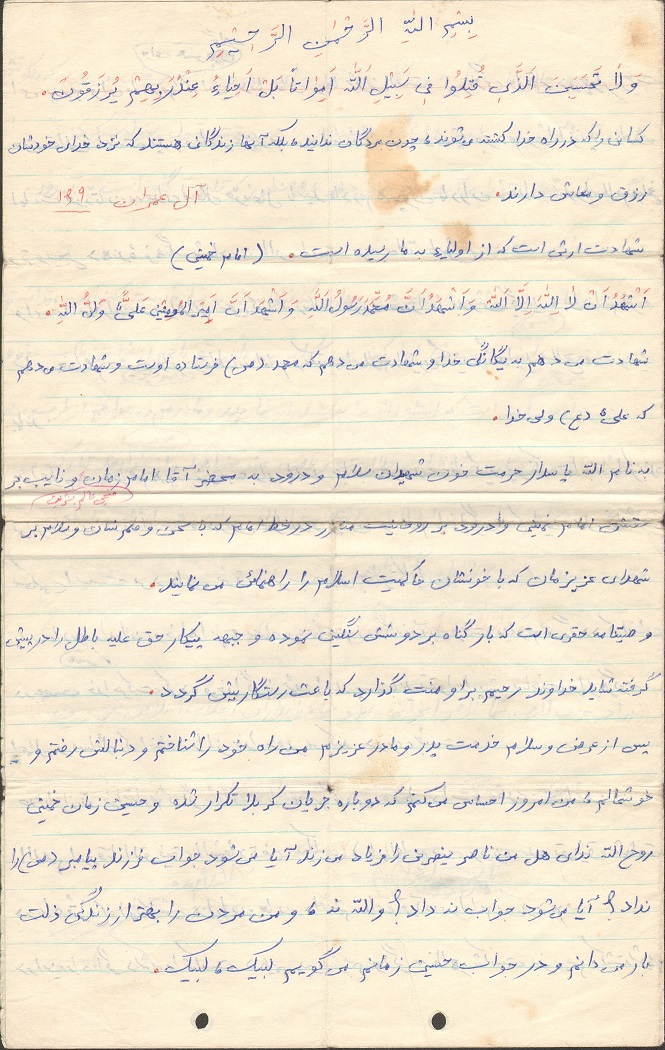 بِسْمِ اللّهِ الرَّحْمٰنِ الرَّحیٖمِ
وَ لاٰ تَحْسَبَنَ اَلَّذیٖنَ قُتِلُوا فیٖ سَبیٖلِ اَللّٰهِ اَمْوٰاتاً بَلْ اَحیٰاءُ عِنْدَ رَبِهِمْ یُرْزَقُونَ.
کسانی را که در راه خدا کشته می شوند، چون مردگان ندانید، بلکه آنها زندگانی هستند که نزد خدای خودشان
رزق و معاش دارند. آل عمران ۱۶۹
شهادت ارثی است که از اولیاء به ما رسیده است. (امام خمینی)
اَشْهَدُ اَنْ لاٰ اِلٰهَ اِلاَّ اَللّٰه وَ اَشْهَدُ اَنَّ مُحَمَّدً رَسُولُ اَللّٰهِ وَ اَشْهَدُ اَنَّ اَمیٖرَ الْمُومِنیٖنَ عَلیَّاً وَلیُّ اللّٰهِ.
شهادت می دهم به یگانگی خدا و شهادت می دهم که محمد (ص) فرستاده اوست و شهادت می دهم
که علی (ع) ولی خدا.
به نام الله پاسدار حرمت خون شهیدان سلام و درود به محضر آقا امام زمان و نایب بر
حقش امام خمینی و درود بر روحانیت در خط امام که با سخن و قلمشان و سلام بر
شهدای عزیزمان که با خونشان حاکمیت اسلام را راهنمائی می نمایند.
وصیتنامه حقری است که بار گناه بر دوشش سنگینی نموده و جبهه پیکار حق علیه باطل را در پیش
گرفته شاید خداوند رحیم بر او منت گذارد که باعث رستگاریش گردد.
پس از عرض و سلام خدمت پدر و مادر عزیزم من راه خود را شناختم و دنبالش رفتم و
خوشحالم، من امروز احساس می کنم که دوباره جریان کربلا تکرار شده و حسین زمان خمینی
روح الله ندای هل من ناصر ینصرنی را فریاد می زند آیا می شود جواب فرزند پیامبر (ص) را
نداد؟ آیا می شود جواب نداد؟ والله نه، و من مردن را بهتر از زندگی ذلت
بار می دانم و در جواب حسین زمانم می گویم لبیک، لبیک.